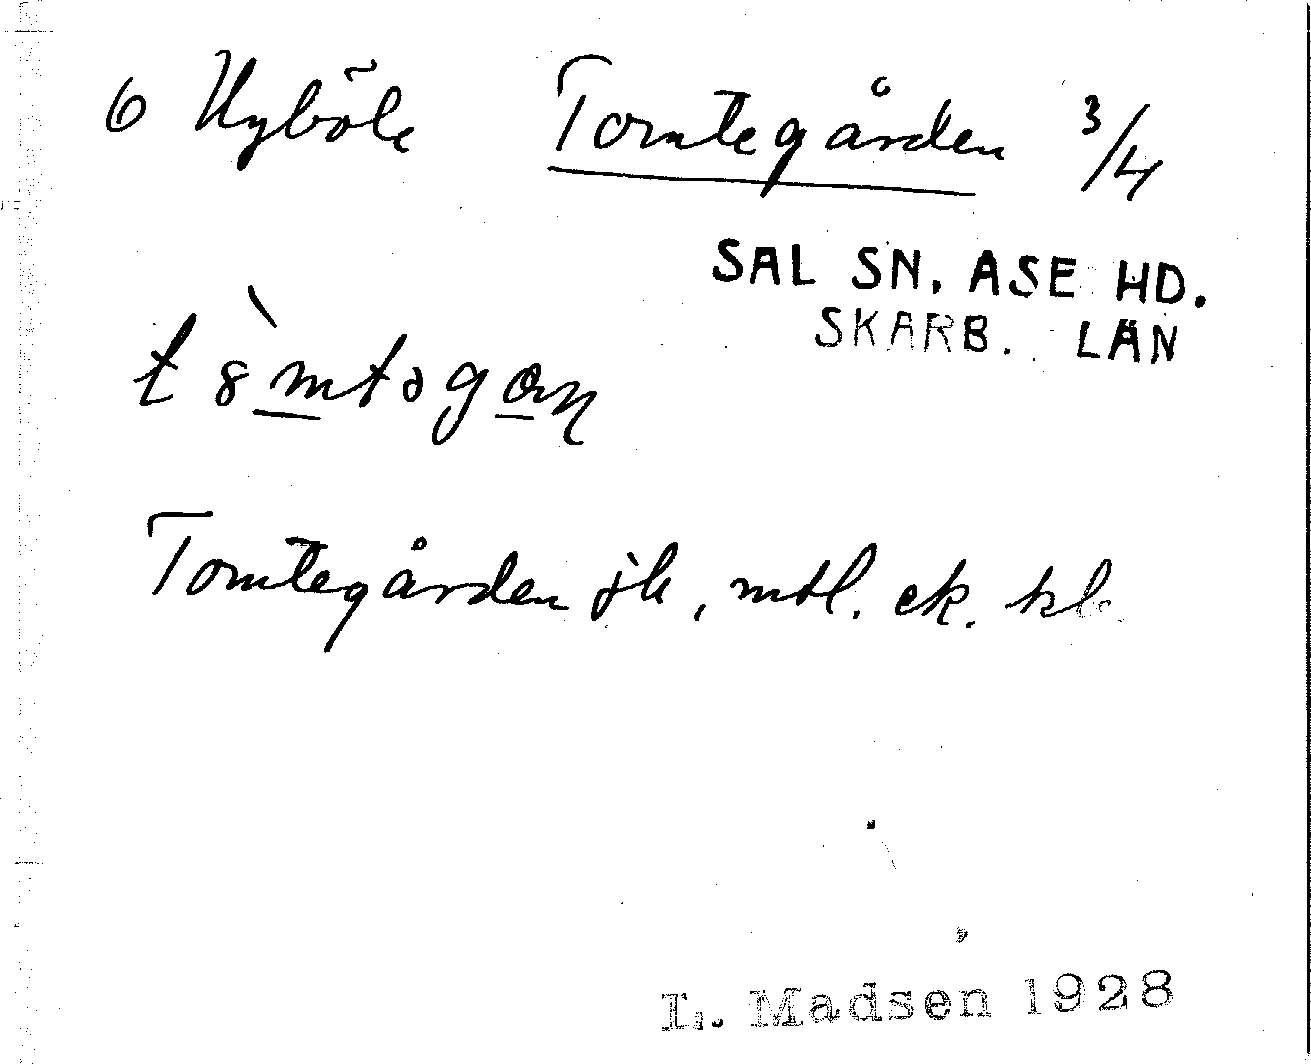 6 Nyböle Tomtegården 3/4
SAL SN. ASE HD.
SKARB. LÄN
Tomtegården jb, mtl. ek. kb.
L. Madsen 1928